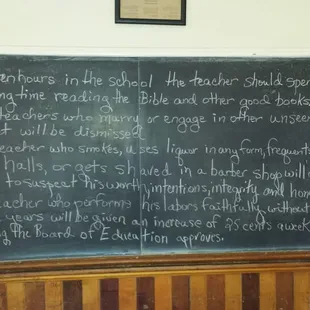 hours in the school the teacher should
time reading the Bible and other good books
teachers who marry or engage in other
will be dismissed
who smokes, uses liquor in any form,
halls, or gets shaved in a barber shop will
to suspect his worth, intentions, integrity and
who performs his labors faithfully without
years will be given an increase of 25 cents a week
the Board of Education approves.